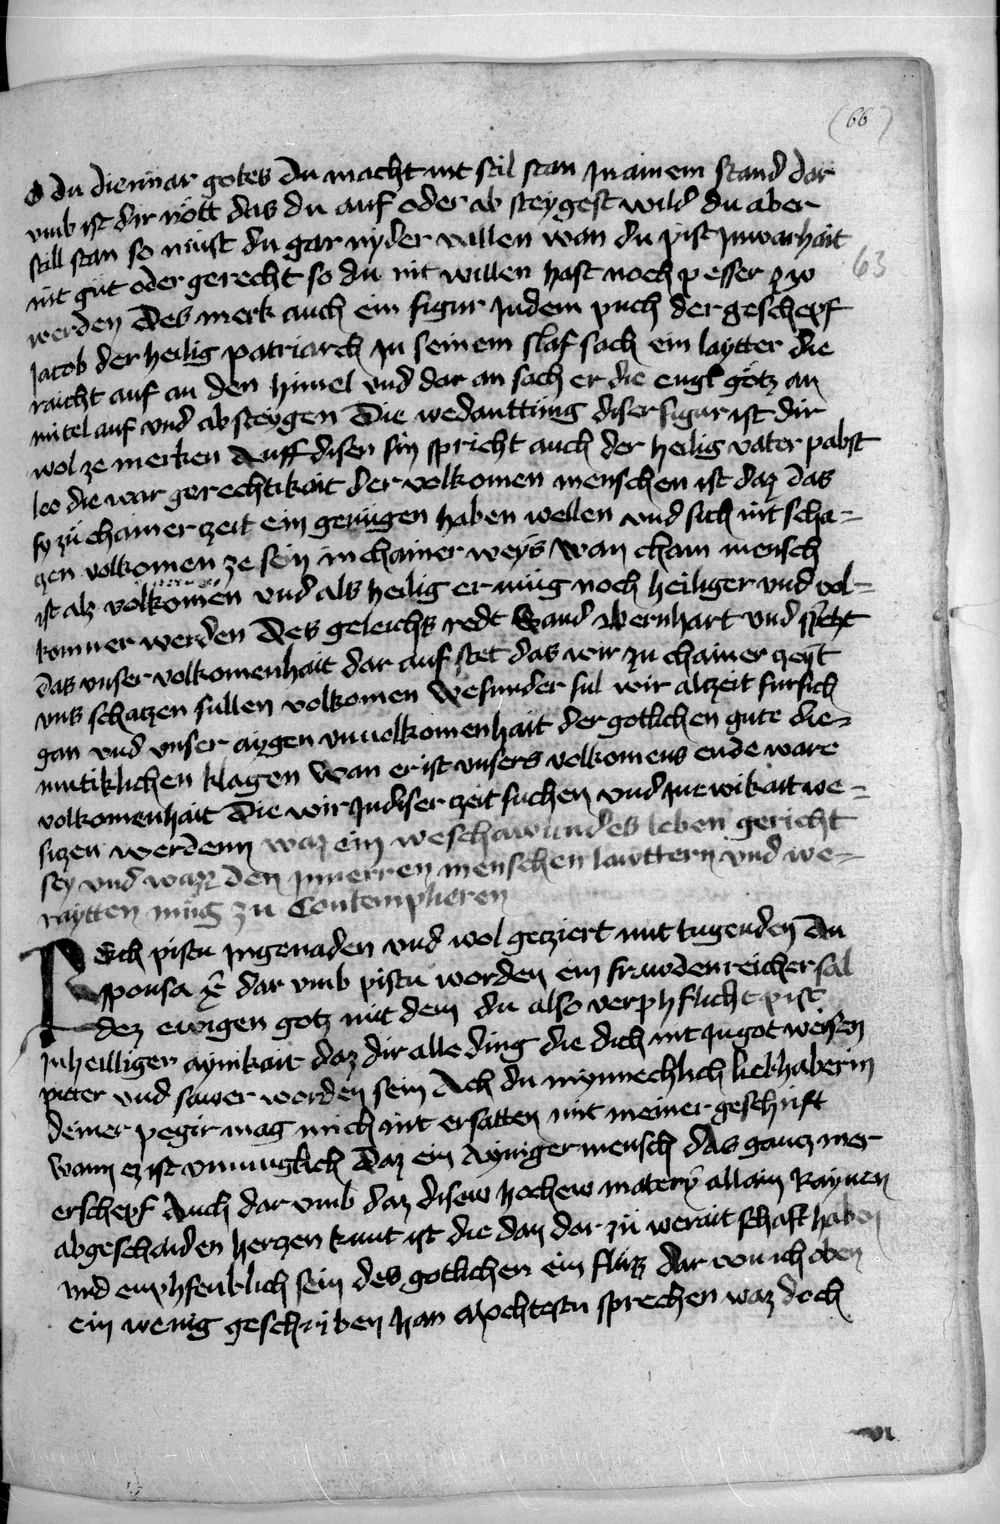 (66)
O du diennar gotes du macht nit stil stan Jn ainem stand dar
vmb ist dir nött das du auf oder ab steygest wild du aber
still stan so müst du gar nyder vallen wan du pist Jnwarhait
63
nit güt oder gerecht so du nit willen hast noch pesser zw
werden Des merk auch ein figur Jndem puch der geschepf
Jacob der heilig patriarch Jn seinem slaf sach ein laytter die
raicht auf an den himel vnd dar an sach er die engl gotz an
mitel auf vnd absteygen Die wedauttüng diser figur ist dir
wol ze merken Auff disen sin spricht auch der heilig vater pabst
leo die war gerechtikait der volkomen menschen ist daz das
sy zü chainer zeit ein genügen haben wellen vnd sich nit scha=
czen volkomen ze sein in chainer weys Wan cham mensch
ist alz volkomen vnd als heilig er müg noch heiliger vnd vol=
komner werden Des geleichs redt Sand Wernhart vnd spricht
das vnser volkomenhait dar auf stet das wir zu chainer zeyt
vns schatzen sullen volkomen Wesunder sul wir alzeit fursich
gan vnd vnser aygen vnuolkomenhait der gotlichen gute die=
mutiklichen klagen Wan er ist vnsers volkomens ende ware
volkomenhait Die wir Jndiser zeit suchen vnd Jn ewikait we=
siczen werdenn waz ein weschawundes leben gericht
sey vnd wazz den Jnnerren menschen lawttern vnd we=
raytten müg zu Contemplieren
Rech pistu Jngenaden vnd wol gecziert mit tugenden Du
sponsa x̄ dar vmb pistu worden ein frawdenreicher sal
dez ewigen gotz mit dem du also verphflicht pist
Jnheilliger aynikait daz dir alle ding die dich nit Jngot weisen
pitter vnd sawer worden sein Ach du mynnechlich liebhaberin
deiner pegir mag mich nit ersatten mit meiner geschrift
wann ez ist vnmuglich Daz ein Ayniger mensch das gancz mer
erschepf Auch dar vmb daz disew hochew matery allain Raynen
abgeschaiden herczen kunt ist die dan dar zü werait schaft haben
vnd emphfenklich sein des gotlichen ein flüzz dar von ich oben
ein wenig geschriben han Mochtestu sprechen waz doch